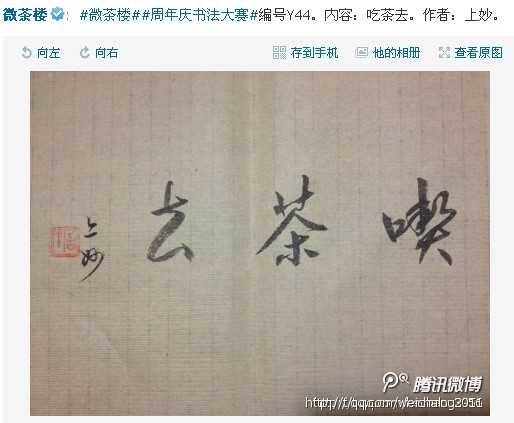 微茶楼：#微茶楼##周年庆书法大赛#编号Y44。内容：吃茶去。作者：上妙。
向左 向右 存到手机 他的相册 查看原图
喫茶去
上妙
腾讯微博